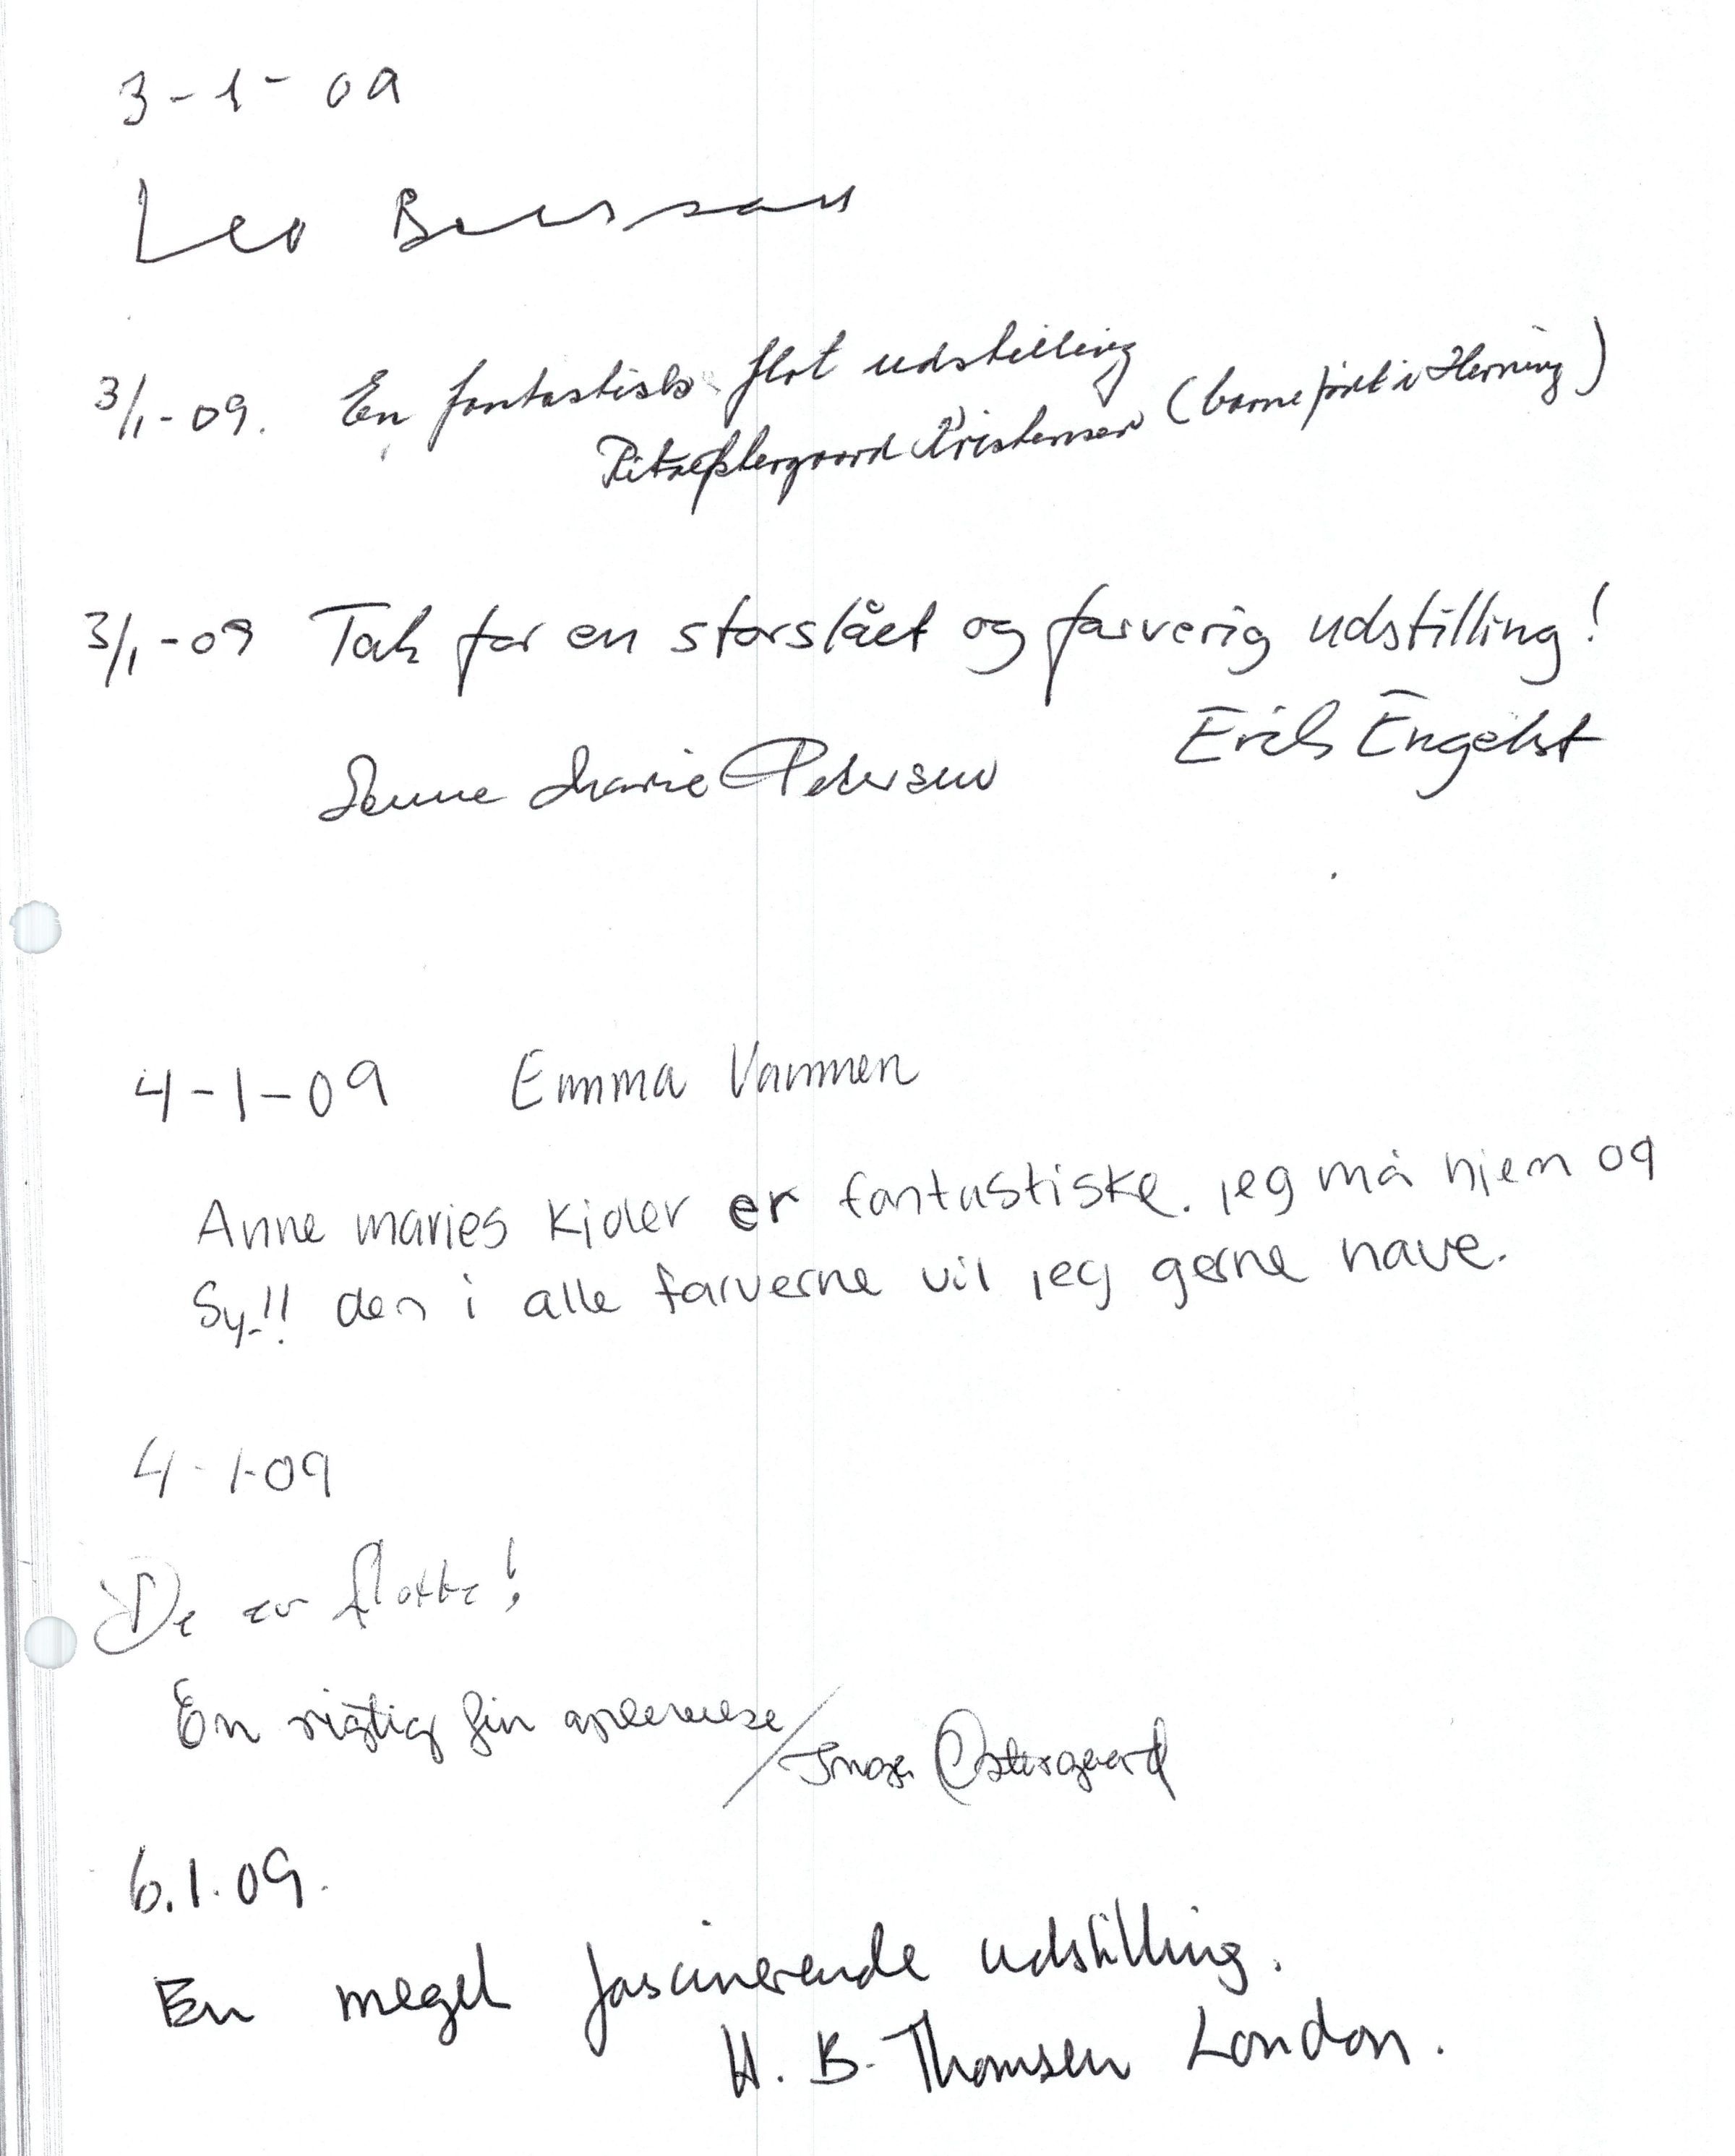 3-1-09
Leo
3/1-09. En fantastisk flot udstilling
Rita Østergaard Kristensen (barnefødt i Herning)
3/1-09 Tak for en storslået og farverig udstilling!
Erik Engelst
Marie Pedersen
4-1-09 Emma Vammen
Anne maries kjoler er fantastiske. jeg må hjem og
Sy!! den i alle farverne vil jeg gerne have.
4-1-09
De er flotte!
En rigtig fin oplevelse / Inga Østergaard
6.1.09.
En meget fascinerende udstilling.
H. B. Thomsen London.